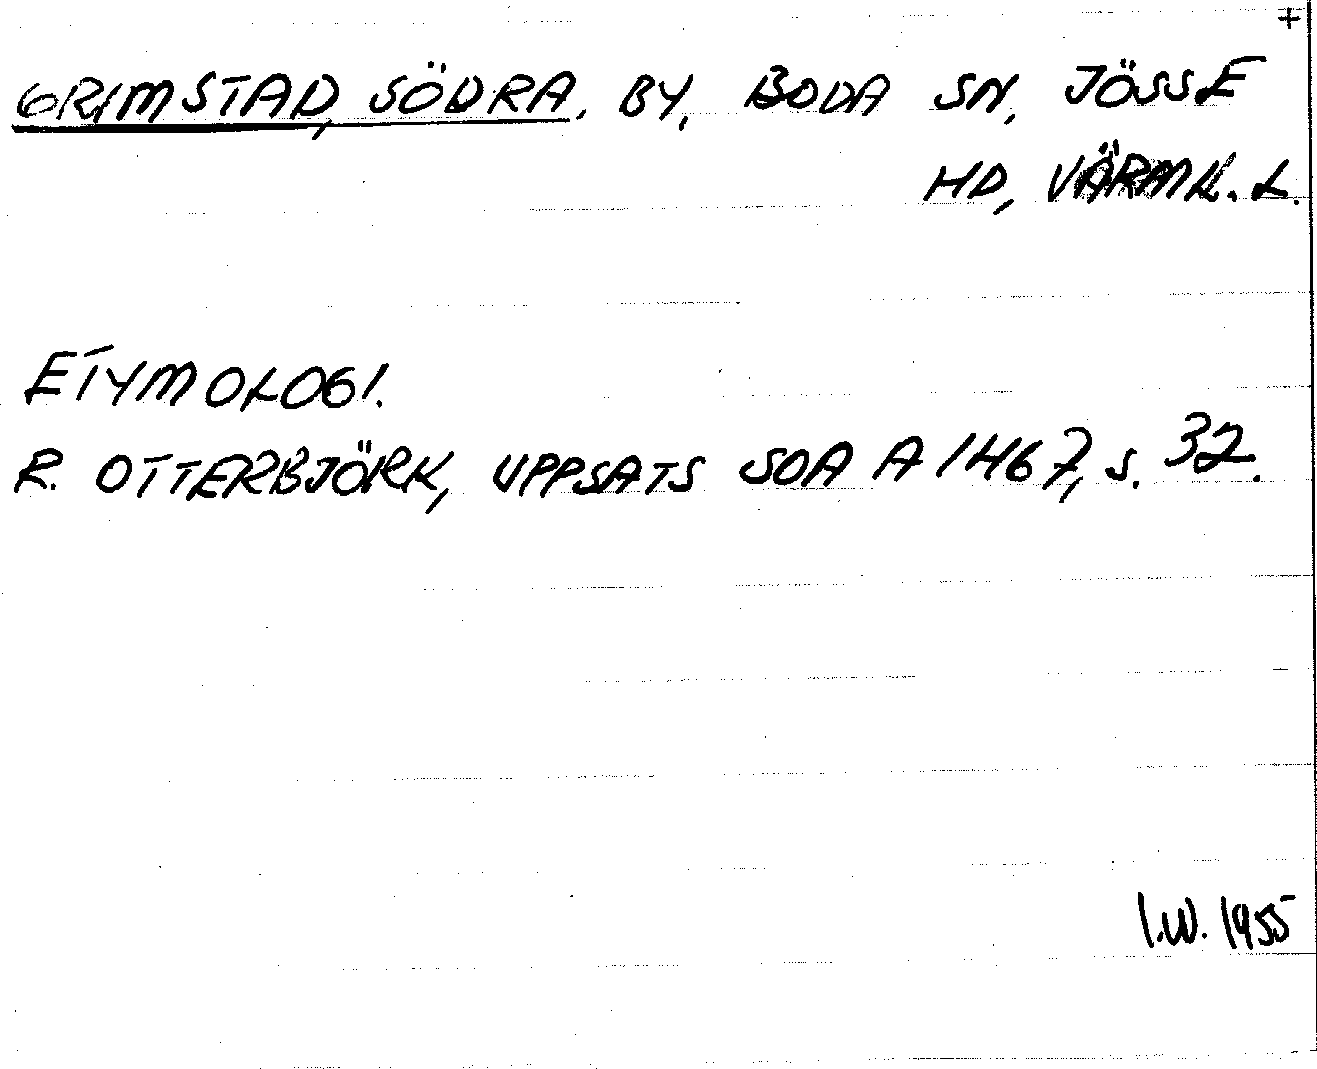 +
GRIMSTAD, SÖDRA, BY, BODA SN, JÖSSE
HD, VÄRML. L.
ETYMOLOGI.
R. OTTERBJÖRK, UPPSATS SOA A 1467, S. 32.
I.W. 1955